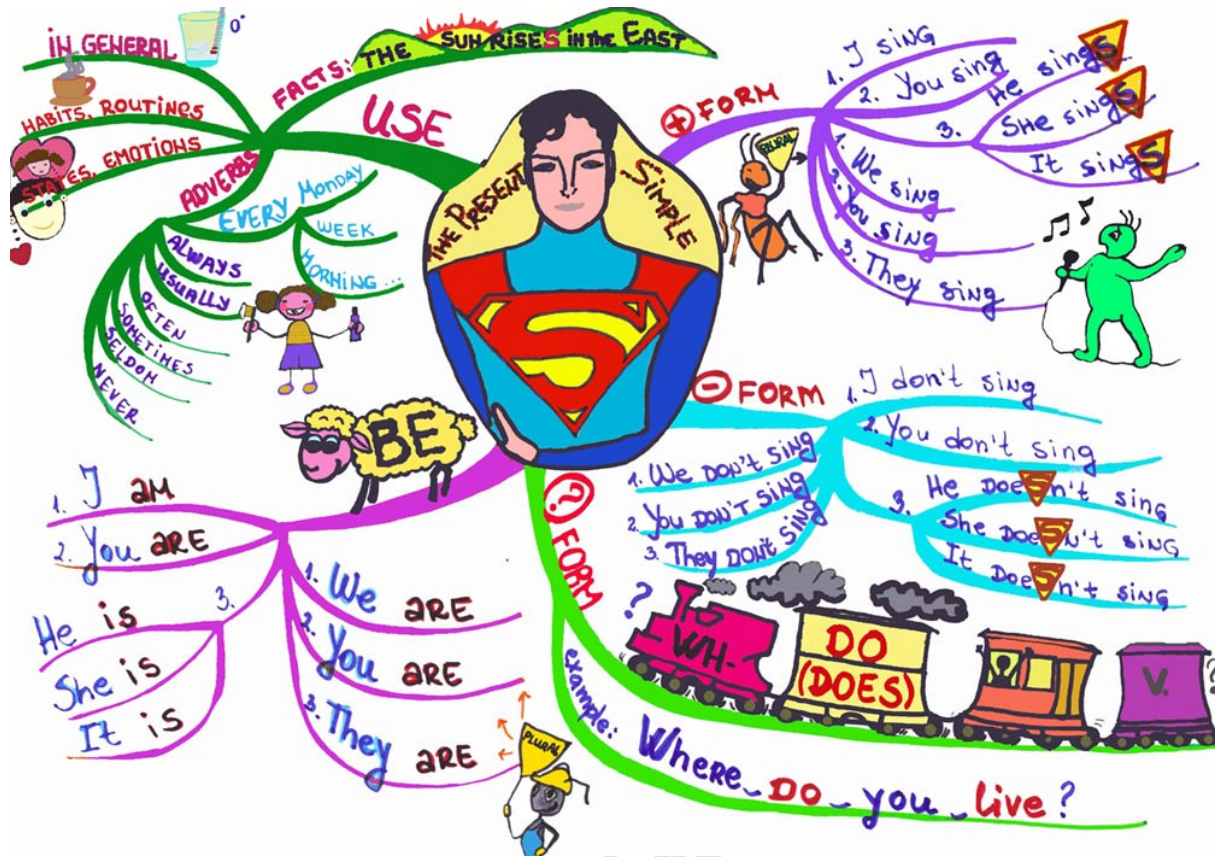 THE PRESENT SIMPLE
S
USE
FACTS: THE SUN RISES in the EAST
iN GENERAL
0°
HABITS, ROUTINES
STATES, EMOTIONS
ADVERBS
EVERY MONDAY
WEEK
MORNING...
ALWAYS
USUALLY
OFTEN
SOMETIMES
SELDOM
NEVER
+ FORM
1. I SING
2. You sing
3.
He singS
She singS
It singS
PLURAL
1. We sing
2. You sing
3. They sing
- FORM
1. I don't sing
2. You don't sing
3.
He DoeSn't sing
She DoeSn't siNG
It DoeSn't siNG
1. We DON'T SING
2. You DON'T SING
3. They DON'T SING
? FORM
?
WH-
DO
(DOES)
V.
?
example: Where DO you live?
BE
1. I AM
2. You ARE
3.
He is
She is
It is
1. We ARE
2. You ARE
3. They ARE
PLURAL